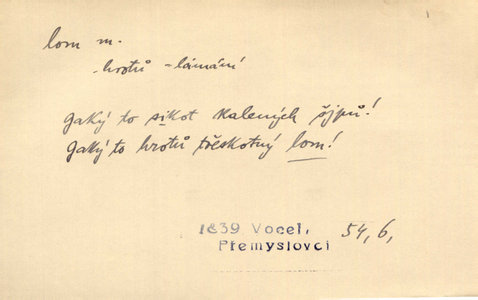 lom m.
hrotů - lámání
Gaký to sikot kalených šípů!
Gaký to hrotů třeskotný lom!
1839 Vocel, 54, 6,
Přemyslovci